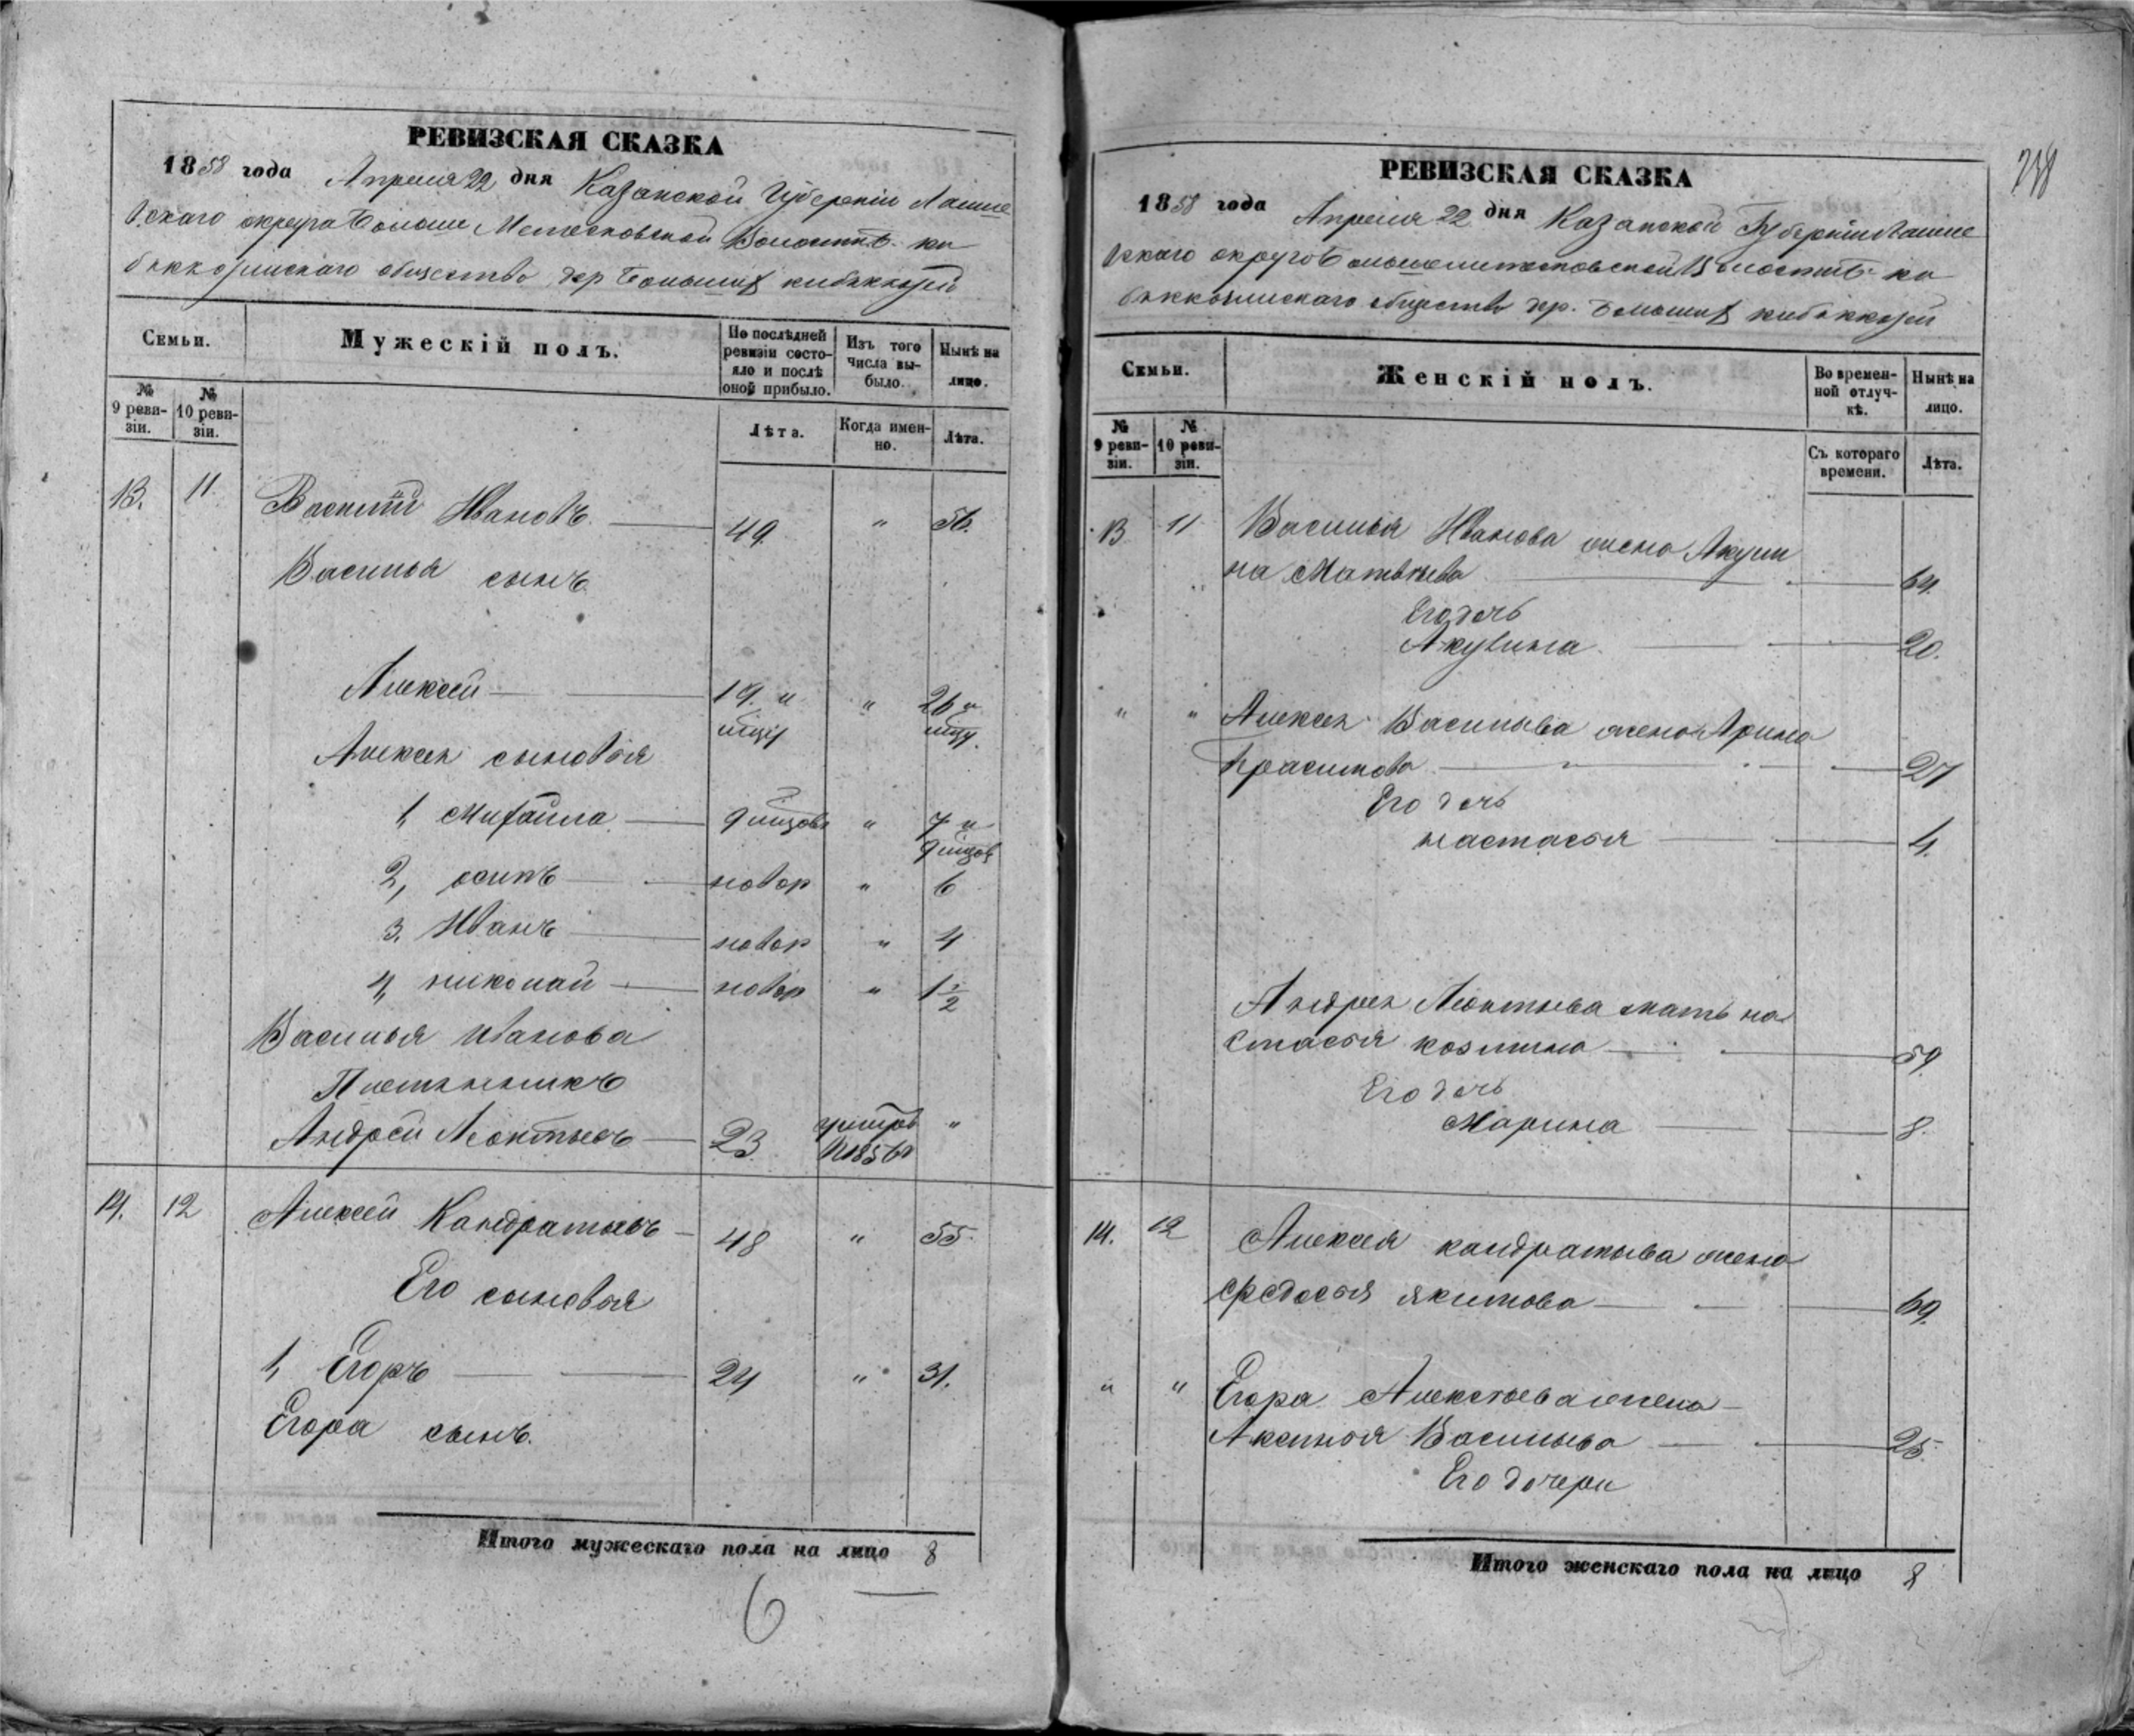 РЕВИЗСКАЯ СКАЗКА
1858 года Апреля 22 дня Казанской Губернiи Лаише
вскаго округа Больше Метесковской Волости ки
бяккозинскаго общества дер Большихъ кибяккозей
Семьи.
Мужескiй полъ.
По послѣдней ревизiи состояло и послѣ оной прибыло.
Изъ того числа выбыло.
Нынѣ на лицо.
№ 9 ревизiи.
№ 10 ревизiи.
Лѣта.
Когда именно.
Лѣта.
13. 11. Василiй Ивановъ 49. " 56.
Василья сынъ
Алексей 19. и " 26 и
Алексея сыновья
1, Михайла 9 " 7 и
9
2, осипъ новор " 6
3. Иванъ новор " 4
4, николай новор " 1 1/2
Василья иванова
Племянникъ
Андрей Леонтьевъ 23. "
14. 12 Алексей Кандратьевъ 48 " 55.
Его сыновья
1, Егоръ 24 " 31.
Егора сынъ.
Итого мужескаго пола на лицо 8
6
238
РЕВИЗСКАЯ СКАЗКА
1858 года Апреля 22 дня Казанской Губернiи Лаише
вскаго округа Большеметесковской Волости ки
бяккозинскаго общества дер. Большихъ кибяккозей
Семьи.
Женскiй полъ.
Во временной отлучкѣ.
Нынѣ на лицо.
№ 9 ревизiи.
№ 10 ревизiи.
Съ котораго времени.
Лѣта.
13 11 Василья Иванова жена Акули
на Матвѣева 64.
Его дочь
Акулина 20.
" " Алексея Васильева жена Арина
Герасимова 27
Его дочь
настасья 4.
Андрея Леонтьева мать на
стасья козмина 59.
Его дочь
Марина 8.
14. 12 Алексея кандратьева жена
Федосья якимова 69.
" " Егора Алексѣева жена
Аксинья Васильева 25.
Его дочери
Итого женскаго пола на лицо 8